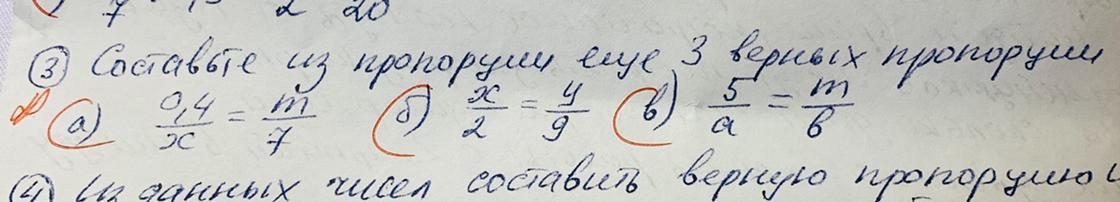 7 2 20
③ Составьте из пропорции еще 3 верных пропорции
а) 0,4/x = m/7 б) x/2 = y/9 в) 5/a = m/b
④ Из данных чисел составить верную пропорцию